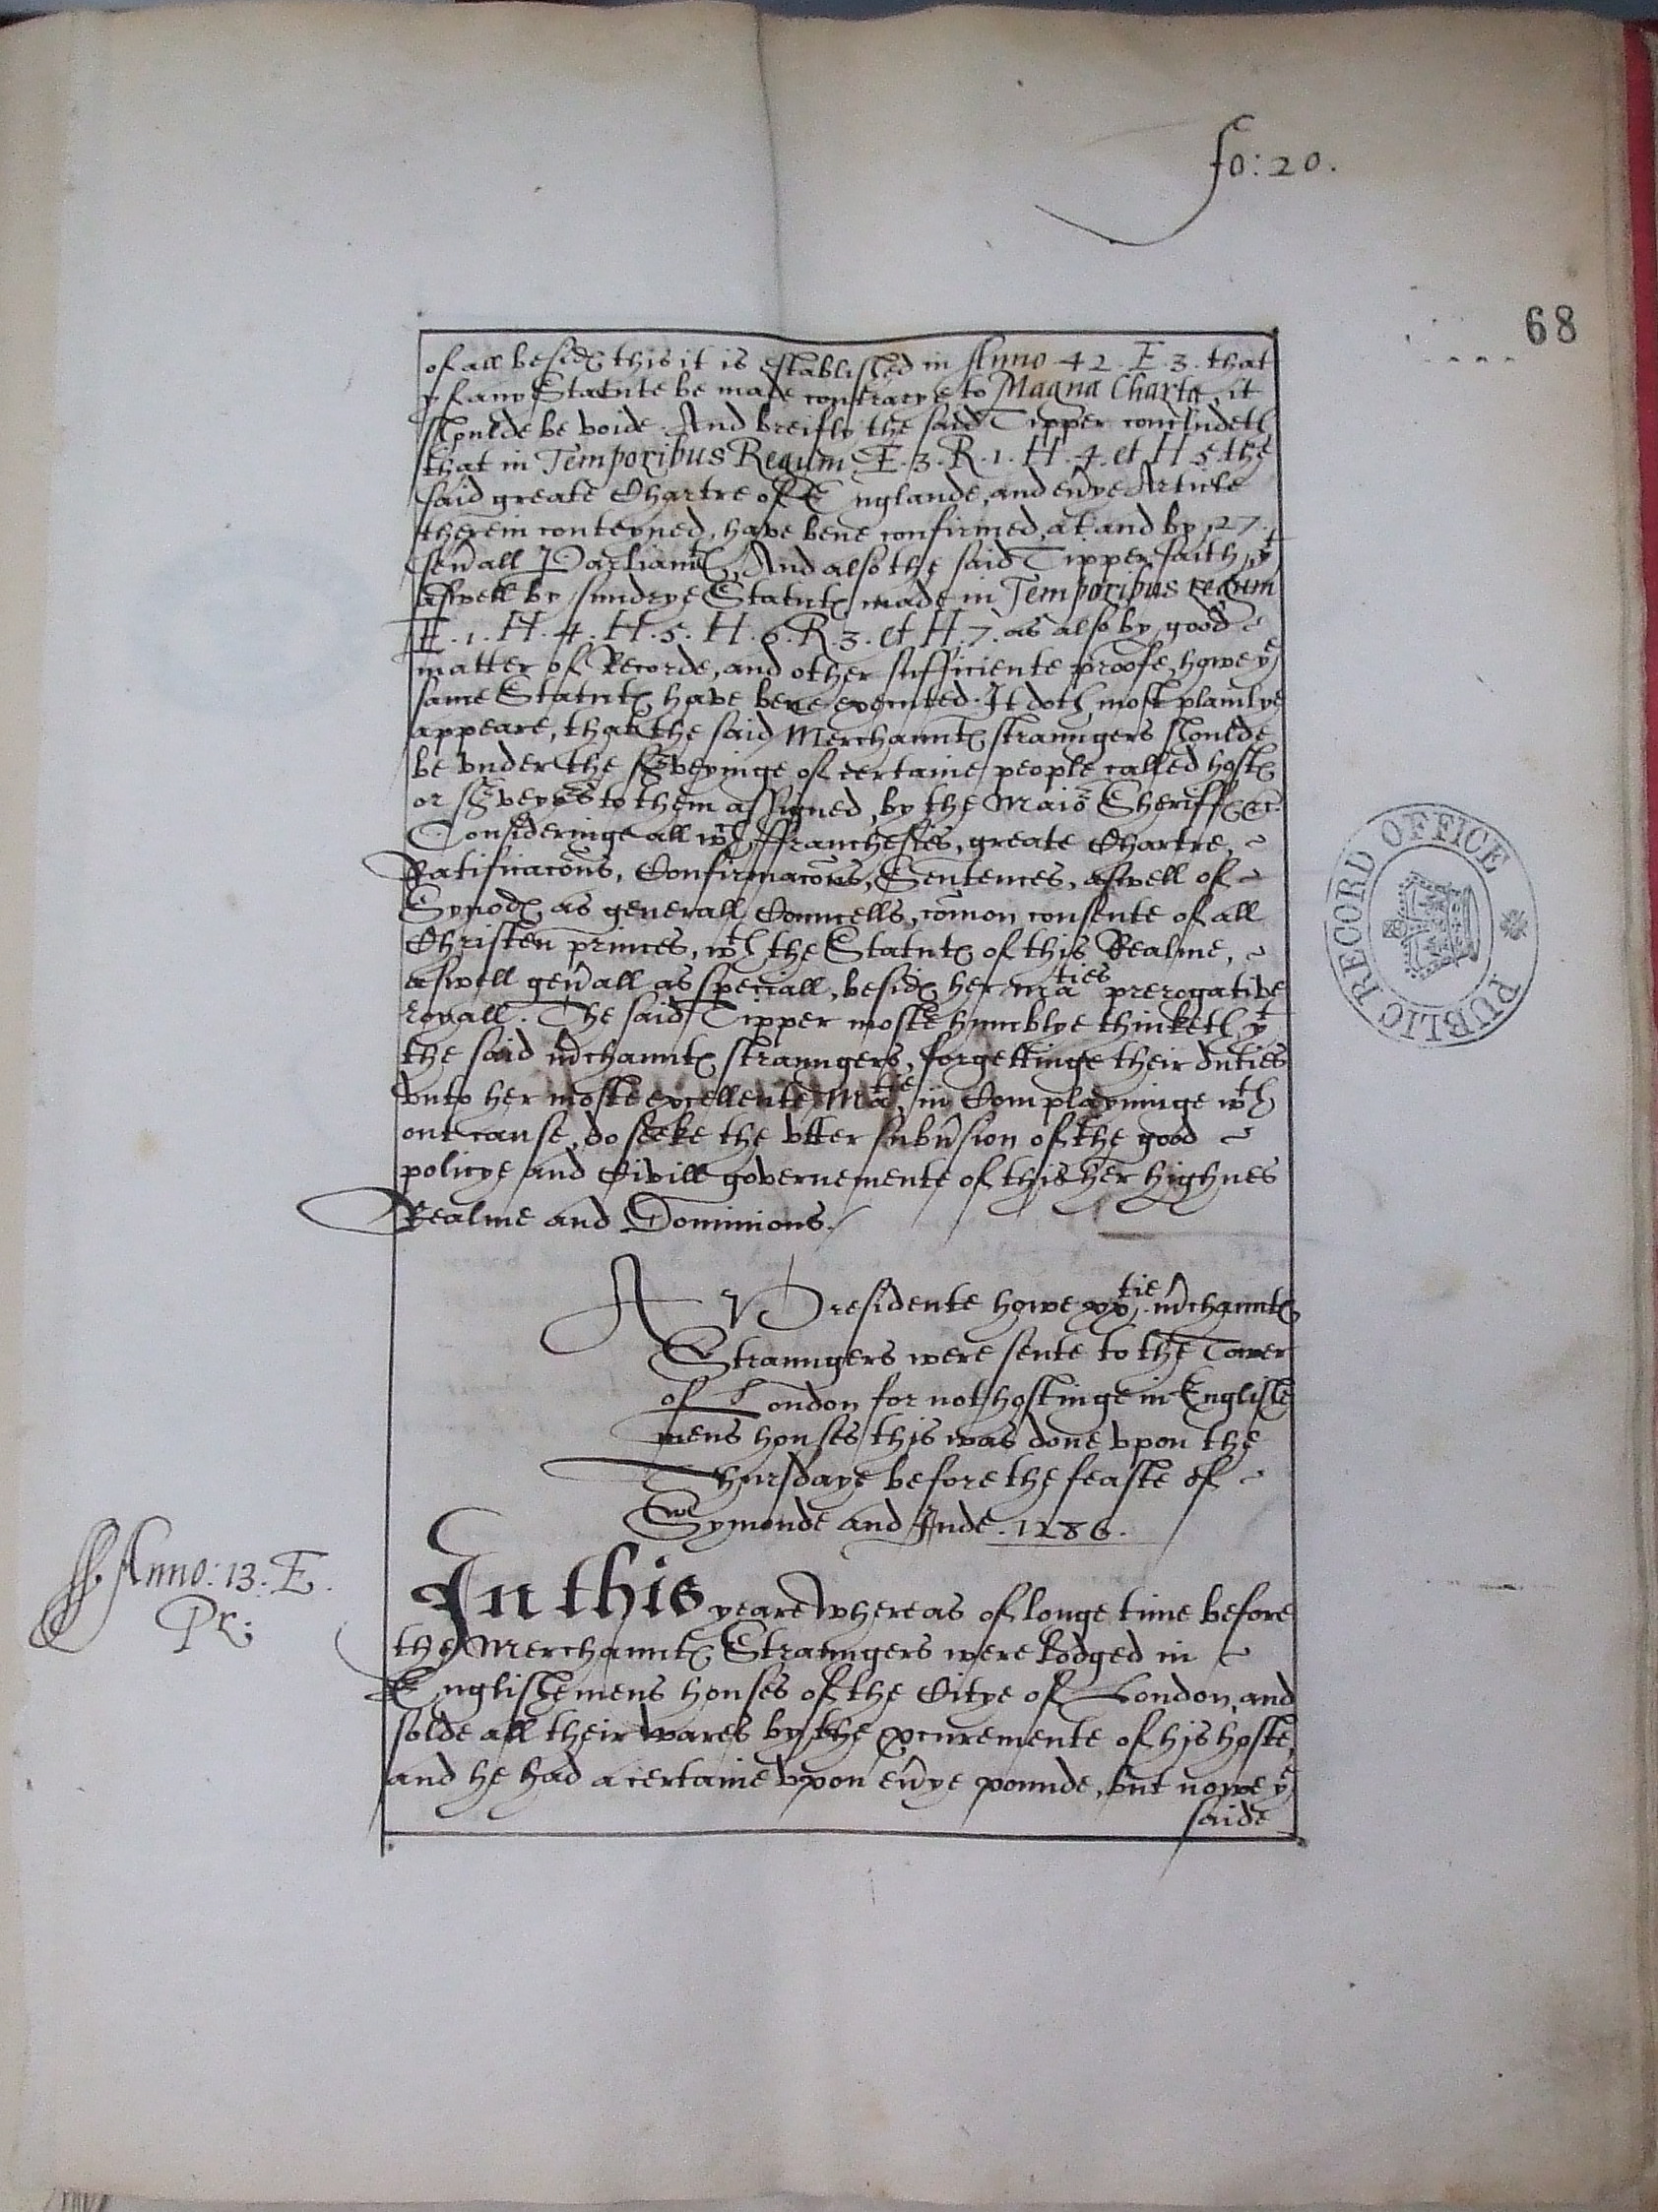 fo: 20.
68
of all besid℮ this it is established in Anno . 42 . E . 3 . that
yf any Statute be made contrarye to Magna Charta, it
shoulde be voide. And breifly the said Tipper concludeth
that in Temporibus Regum E . 3 . R . 1 . H . 4 . et H 5 the
said greate Chartre of Englande, and eu̅ye Article
therein conteyned, have bene confirmed, at and by 27.
seu̅all Parliam^t℮, And also the said Tipper saith, y^t
aswell by sundrye Statut℮ made in Temporibus regum
E . 1 . H . 4 . H . 5 . H . 6 . R . 3 . et H . 7 . as also by good
matter of Recorde, and other sufficiente proofe, howe y^e
same Statut℮ have bene executed. It doth most plainlye
appeare, that the said Merchaunt℮ straungers shoulde
be vnder the s^rveyinge of certaine people called host℮
or s^rveyo^rs to them assigned, by the Maio^r Sheriff℮ &c.
Consideringe all w^ch ffranchesies, greate Chartre,
Ratificaco̅ns, Confirmaco̅ns, Sentences, aswell of
Synod℮ as generall Councells, co̅mon consente of all
Christen princes, w^th the Statut℮ of this Realme,
aswell gen̅all as speciall, besid℮ her ma^ties prerogative
royall. The said Tipper moste humblye thinketh y^t
the said m̅chaunt℮ straungers, forgettinge their duties
vnto her moste excellente Ma^tie, in Complayninge w^th
out cause, do seeke the vtter subu̅sion of the good
policye and Civill governemente of this her highnes
Realme and Dominions.
A Presidente howe xx^tie m̅chaunt℮
Straungers were sente to the Tower
of London for not hostinge in Englishe
mens houses this was done vpon the
Thursdaye before the feaste of
Symonde and Jude . 1286.
Anno: 13. E.
Pr:
In this yeare whereas of longe time before
the Merchaunt℮ Straungers were lodged in
Englishemens houses of the Citye of London, and
solde all their wares by the p̱curemente of his hoste,
and he had a certaine vpon eu̅ye pounde, but nowe y^e
saide
PUBLIC RECORD OFFICE